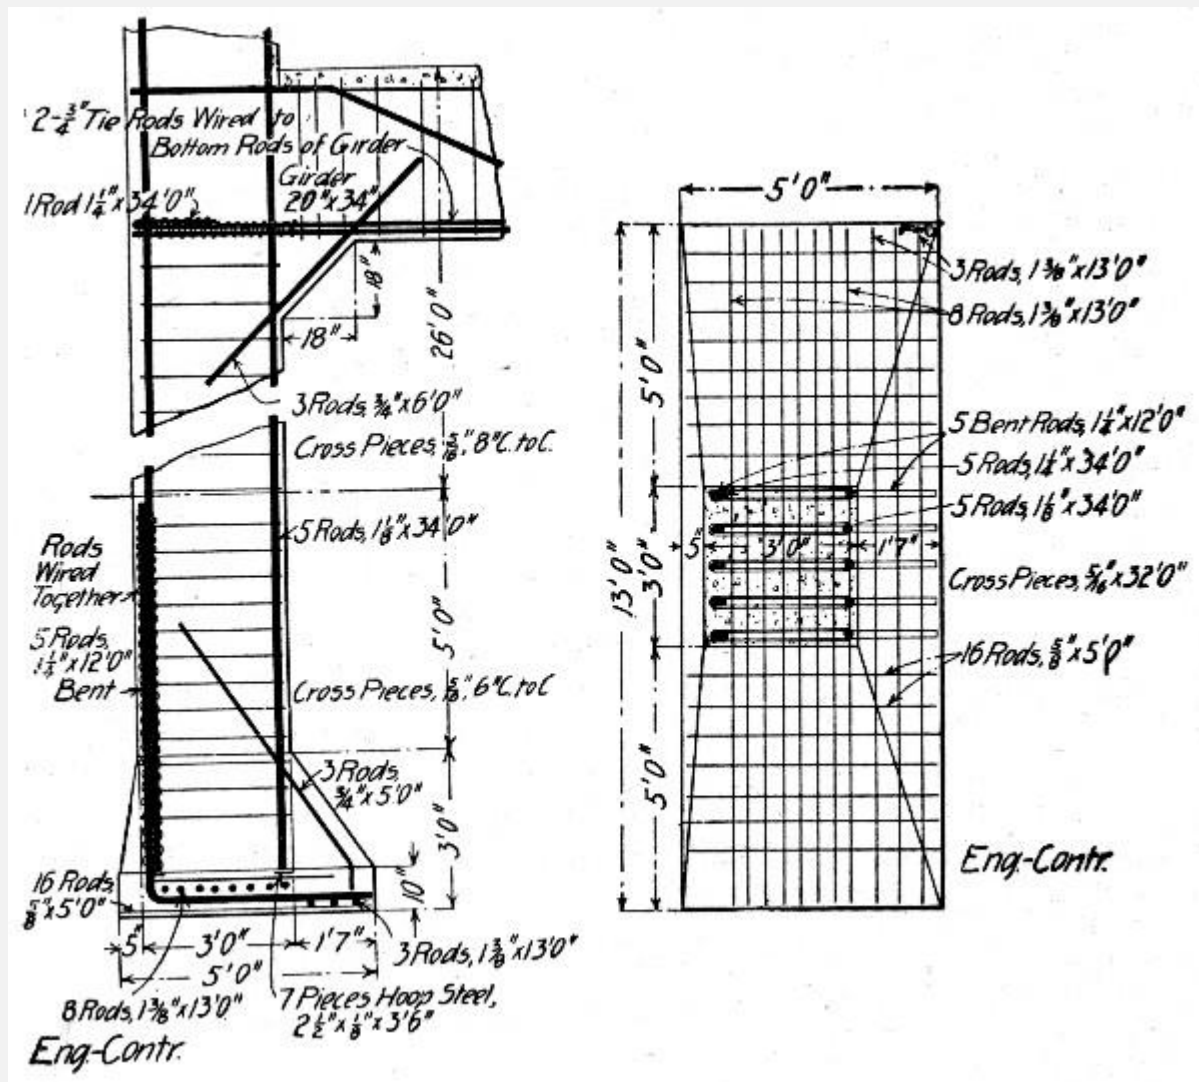 2-3/4" Tie Rods Wired to
Bottom Rods of Girder
Girder
20"x34"
1 Rod 1 1/4" x 34'0"
18"
18"
26'0"
3 Rods, 3/4" x 6'0"
Cross Pieces, 5/16", 8"C. to C.
5 Rods, 1 1/8" x 34'0"
Rods
Wired
Together
5 Rods,
1 1/4" x 12'0"
Bent
5'0"
Cross Pieces, 5/16", 6"C. to C
3 Rods,
3/4" x 5'0"
3'0"
10"
16 Rods,
5/8" x 5'0"
5" 3'0" 1'7"
5'0"
3 Rods, 1 3/8" x 13'0"
8 Rods, 1 3/8" x 13'0"
7 Pieces Hoop Steel,
2 1/2" x 1/8" x 3'6"
Eng-Contr.
5'0"
3 Rods, 1 3/8" x 13'0"
8 Rods, 1 3/8" x 13'0"
5'0"
5 Bent Rods, 1 1/4" x 12'0"
5 Rods, 1 1/4" x 34'0"
5 Rods, 1 1/8" x 34'0"
5" 3'0" 1'7"
13'0"
3'0"
Cross Pieces, 5/16" x 32'0"
16 Rods, 5/8" x 5'0"
5'0"
Eng-Contr.